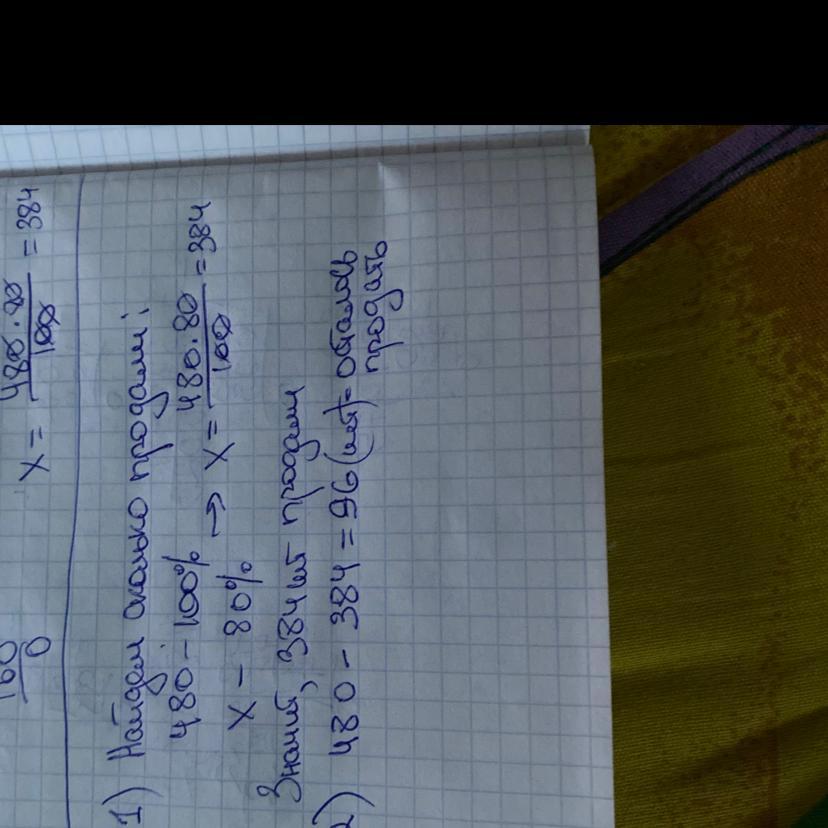 160
0
x = 480 · 80 / 100 = 384
1) Найдем сколько продали:
480 – 100% → x = 480 · 80 / 100 = 384
x – 80%
Значит, 384 шт продали
2) 480 – 384 = 96 (шт) = осталось
продать